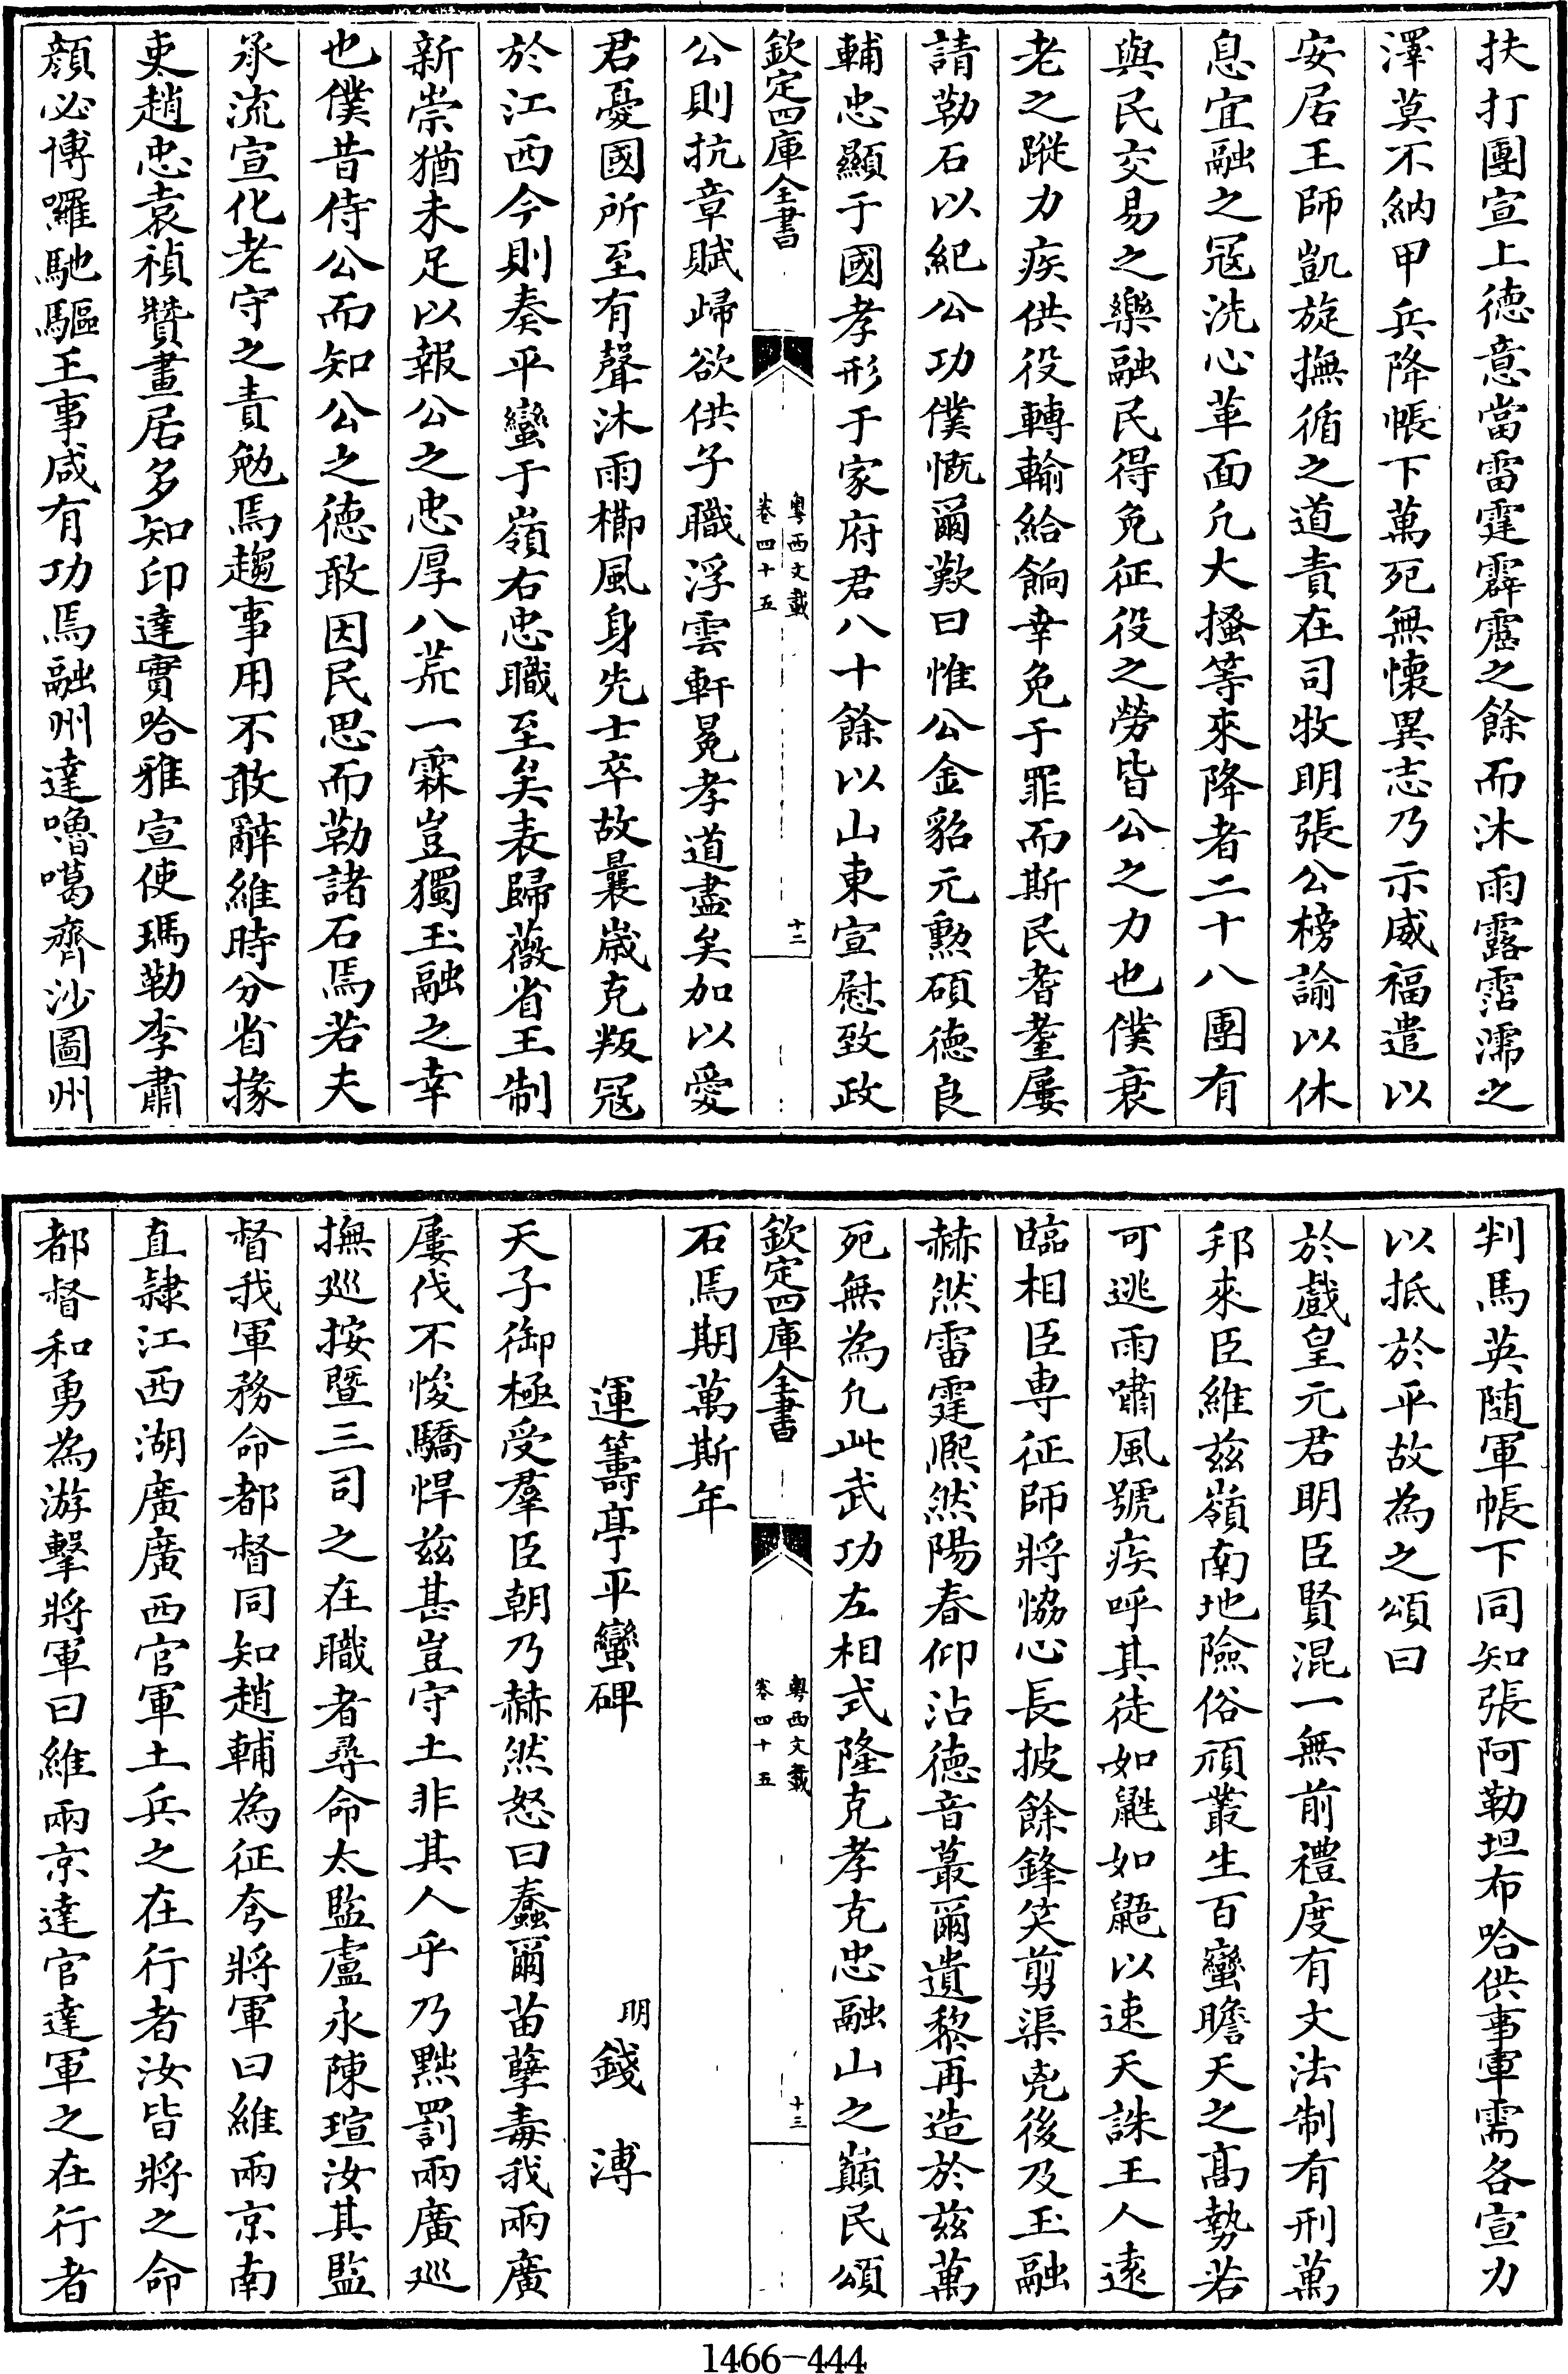 扶打團宣上徳意當雷霆霹靂之餘而沐雨露霑濡之
澤莫不納甲兵降帳下萬死無懐異志乃示威福遣以
安居王師凱旋撫循之道責在司牧明張公榜諭以休
息宜融之冦洗心革面凡大搔等來降者二十八團有
與民交易之樂融民得免征役之勞皆公之力也僕衰
老之蹤力疾供役轉輸給餉幸免于罪而斯民耆耋屢
請勒石以紀公功僕慨爾歎曰惟公金貂元勲碩徳良
輔忠顯于國孝形于家府君八十餘以山東宣慰致政
欽定四庫全書
粤西文載
卷四十五
十二
公則抗章賦歸欲供子職浮雲軒冕孝道盡矣加以愛
君憂國所至有聲沐雨櫛風身先士卒故曩嵗克叛冦
於江西今則奏平蠻于嶺右忠職至矣表歸薇省王制
新崇猶未足以報公之忠厚八荒一霖豈獨玉融之幸
也僕昔侍公而知公之徳敢因民思而勒諸石焉若夫
承流宣化老守之責勉焉趨事用不敢辭維時分省掾
吏趙忠袁禎贊畫居多知印達實哈雅宣使瑪勒李肅
顔必博囉馳驅王事咸有功焉融州達嚕噶齊沙圖州
判馬英随軍帳下同知張阿勒坦布哈供事軍需各宣力
以抵於平故為之頌曰
於戲皇元君明臣賢混一無前禮度有文法制有刑萬
邦來臣維兹嶺南地險俗頑叢生百蠻瞻天之髙勢若
可逃雨嘯風號疾呼其徒如鼪如鼯以速天誅王人逺
臨相臣専征師將恊心長披餘鋒笑剪渠兇後及玉融
赫然雷霆熈然陽春仰沾徳音蕞爾遺黎再造於兹萬
死無為凡此武功左相式隆克孝克忠融山之巔民頌
欽定四庫全書
粤西文載
卷四十五
十三
石焉期萬斯年
運籌亭平蠻碑
明錢溥
天子御極受羣臣朝乃赫然怒曰蠢爾苗孽毒我兩廣
屢伐不悛驕悍兹甚豈守土非其人乎乃黜罰兩廣巡
撫巡按暨三司之在職者尋命太監盧永陳瑄汝其監
督我軍務命都督同知趙輔為征夸將軍曰維兩京南
直隷江西湖廣廣西官軍土兵之在行者汝皆將之命
都督和勇為游擊將軍曰維兩京達官達軍之在行者
1466-444